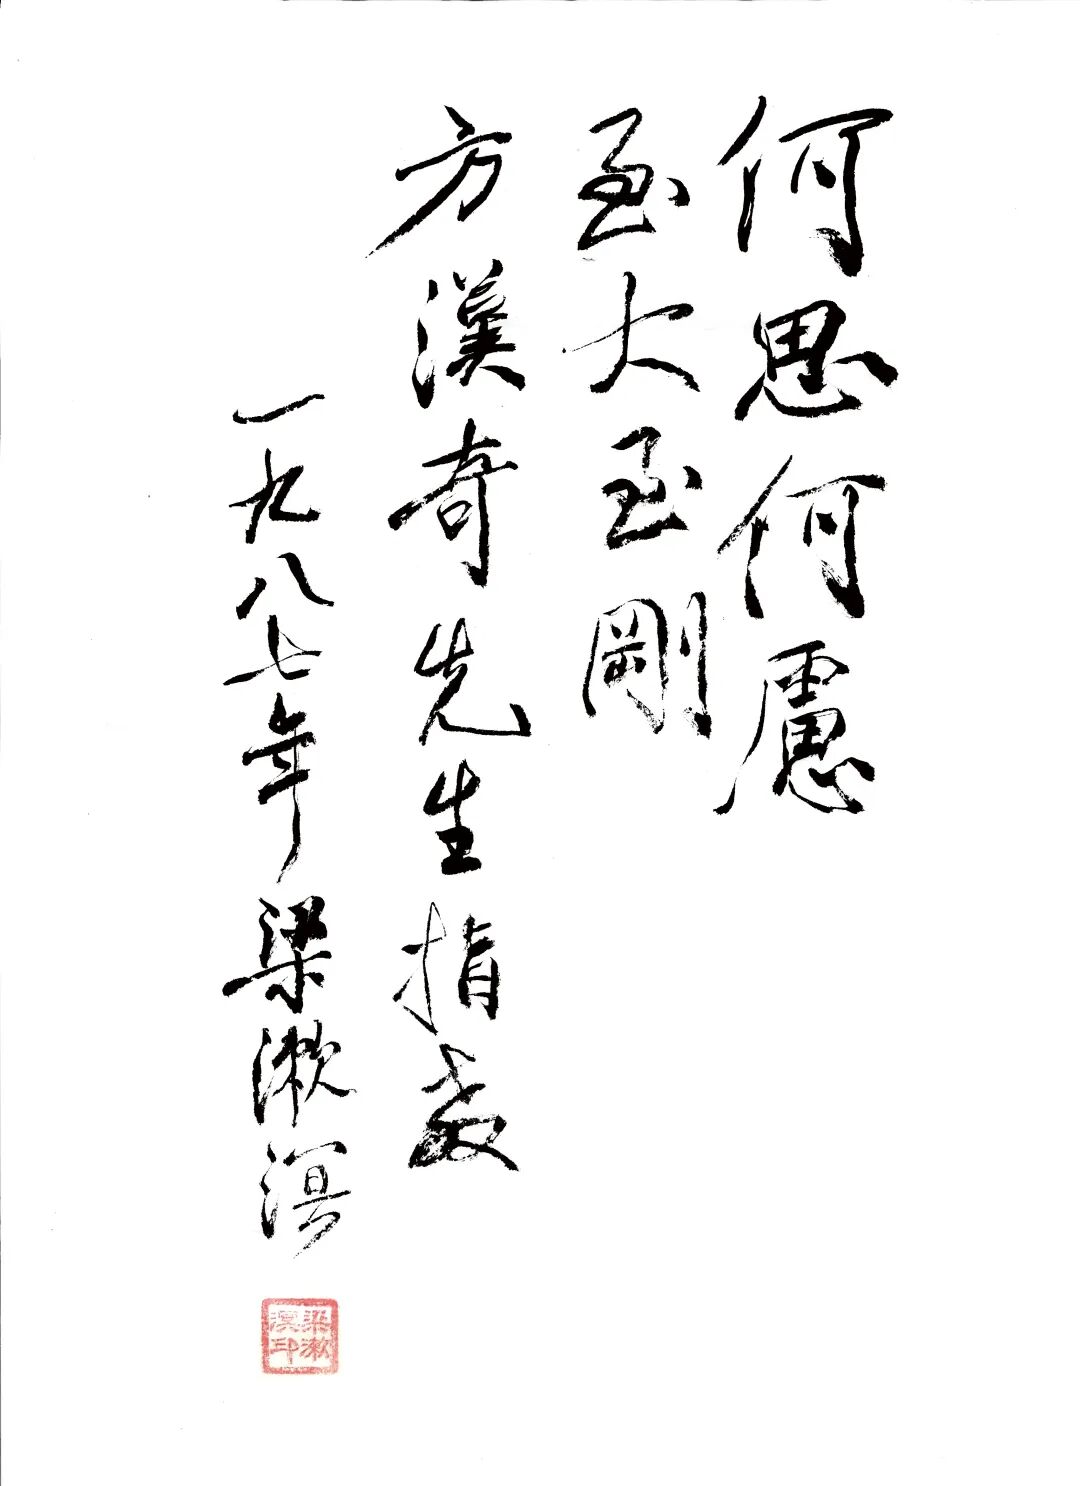 何思何慮
至大至剛
方漢奇先生指教
一九八七年梁漱溟
梁漱
溟印